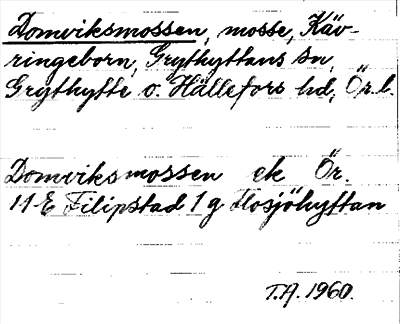 Domviksmossen, mosse, Käv-
ringeborn, Grythyttans sn,
Grythytte o. Hällefors hd, Ör. l.
Domviksmossen ek Ör.
11 E Filipstad 1 g Hosjöhyttan
T.A. 1960.